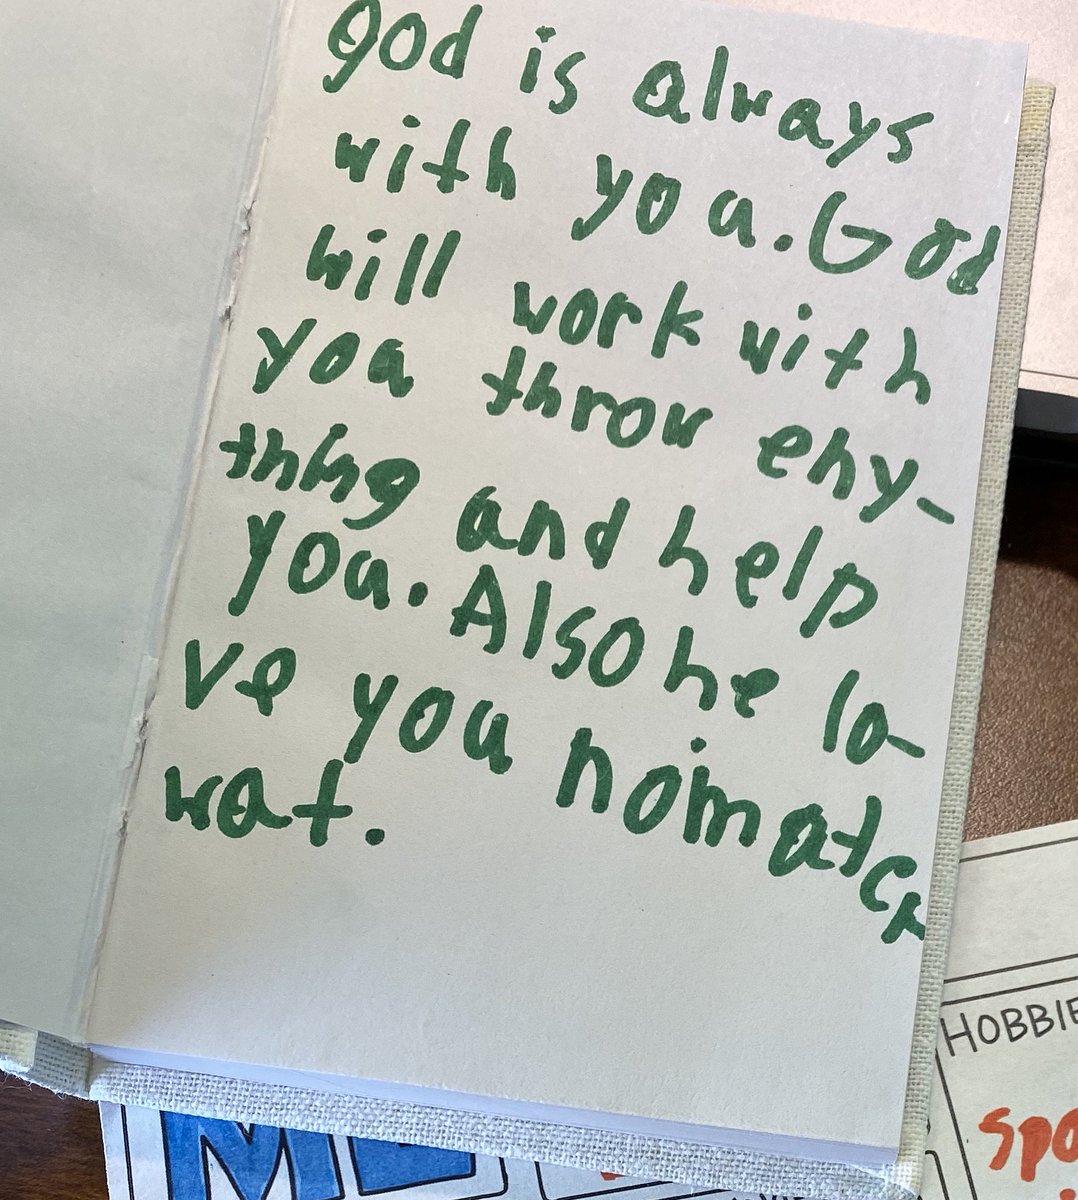 god is always
with you. God
will work with
you throw eny-
thing and help
you. Also he lo-
ve you nomater
wat.
HOBBIE
spo
ME